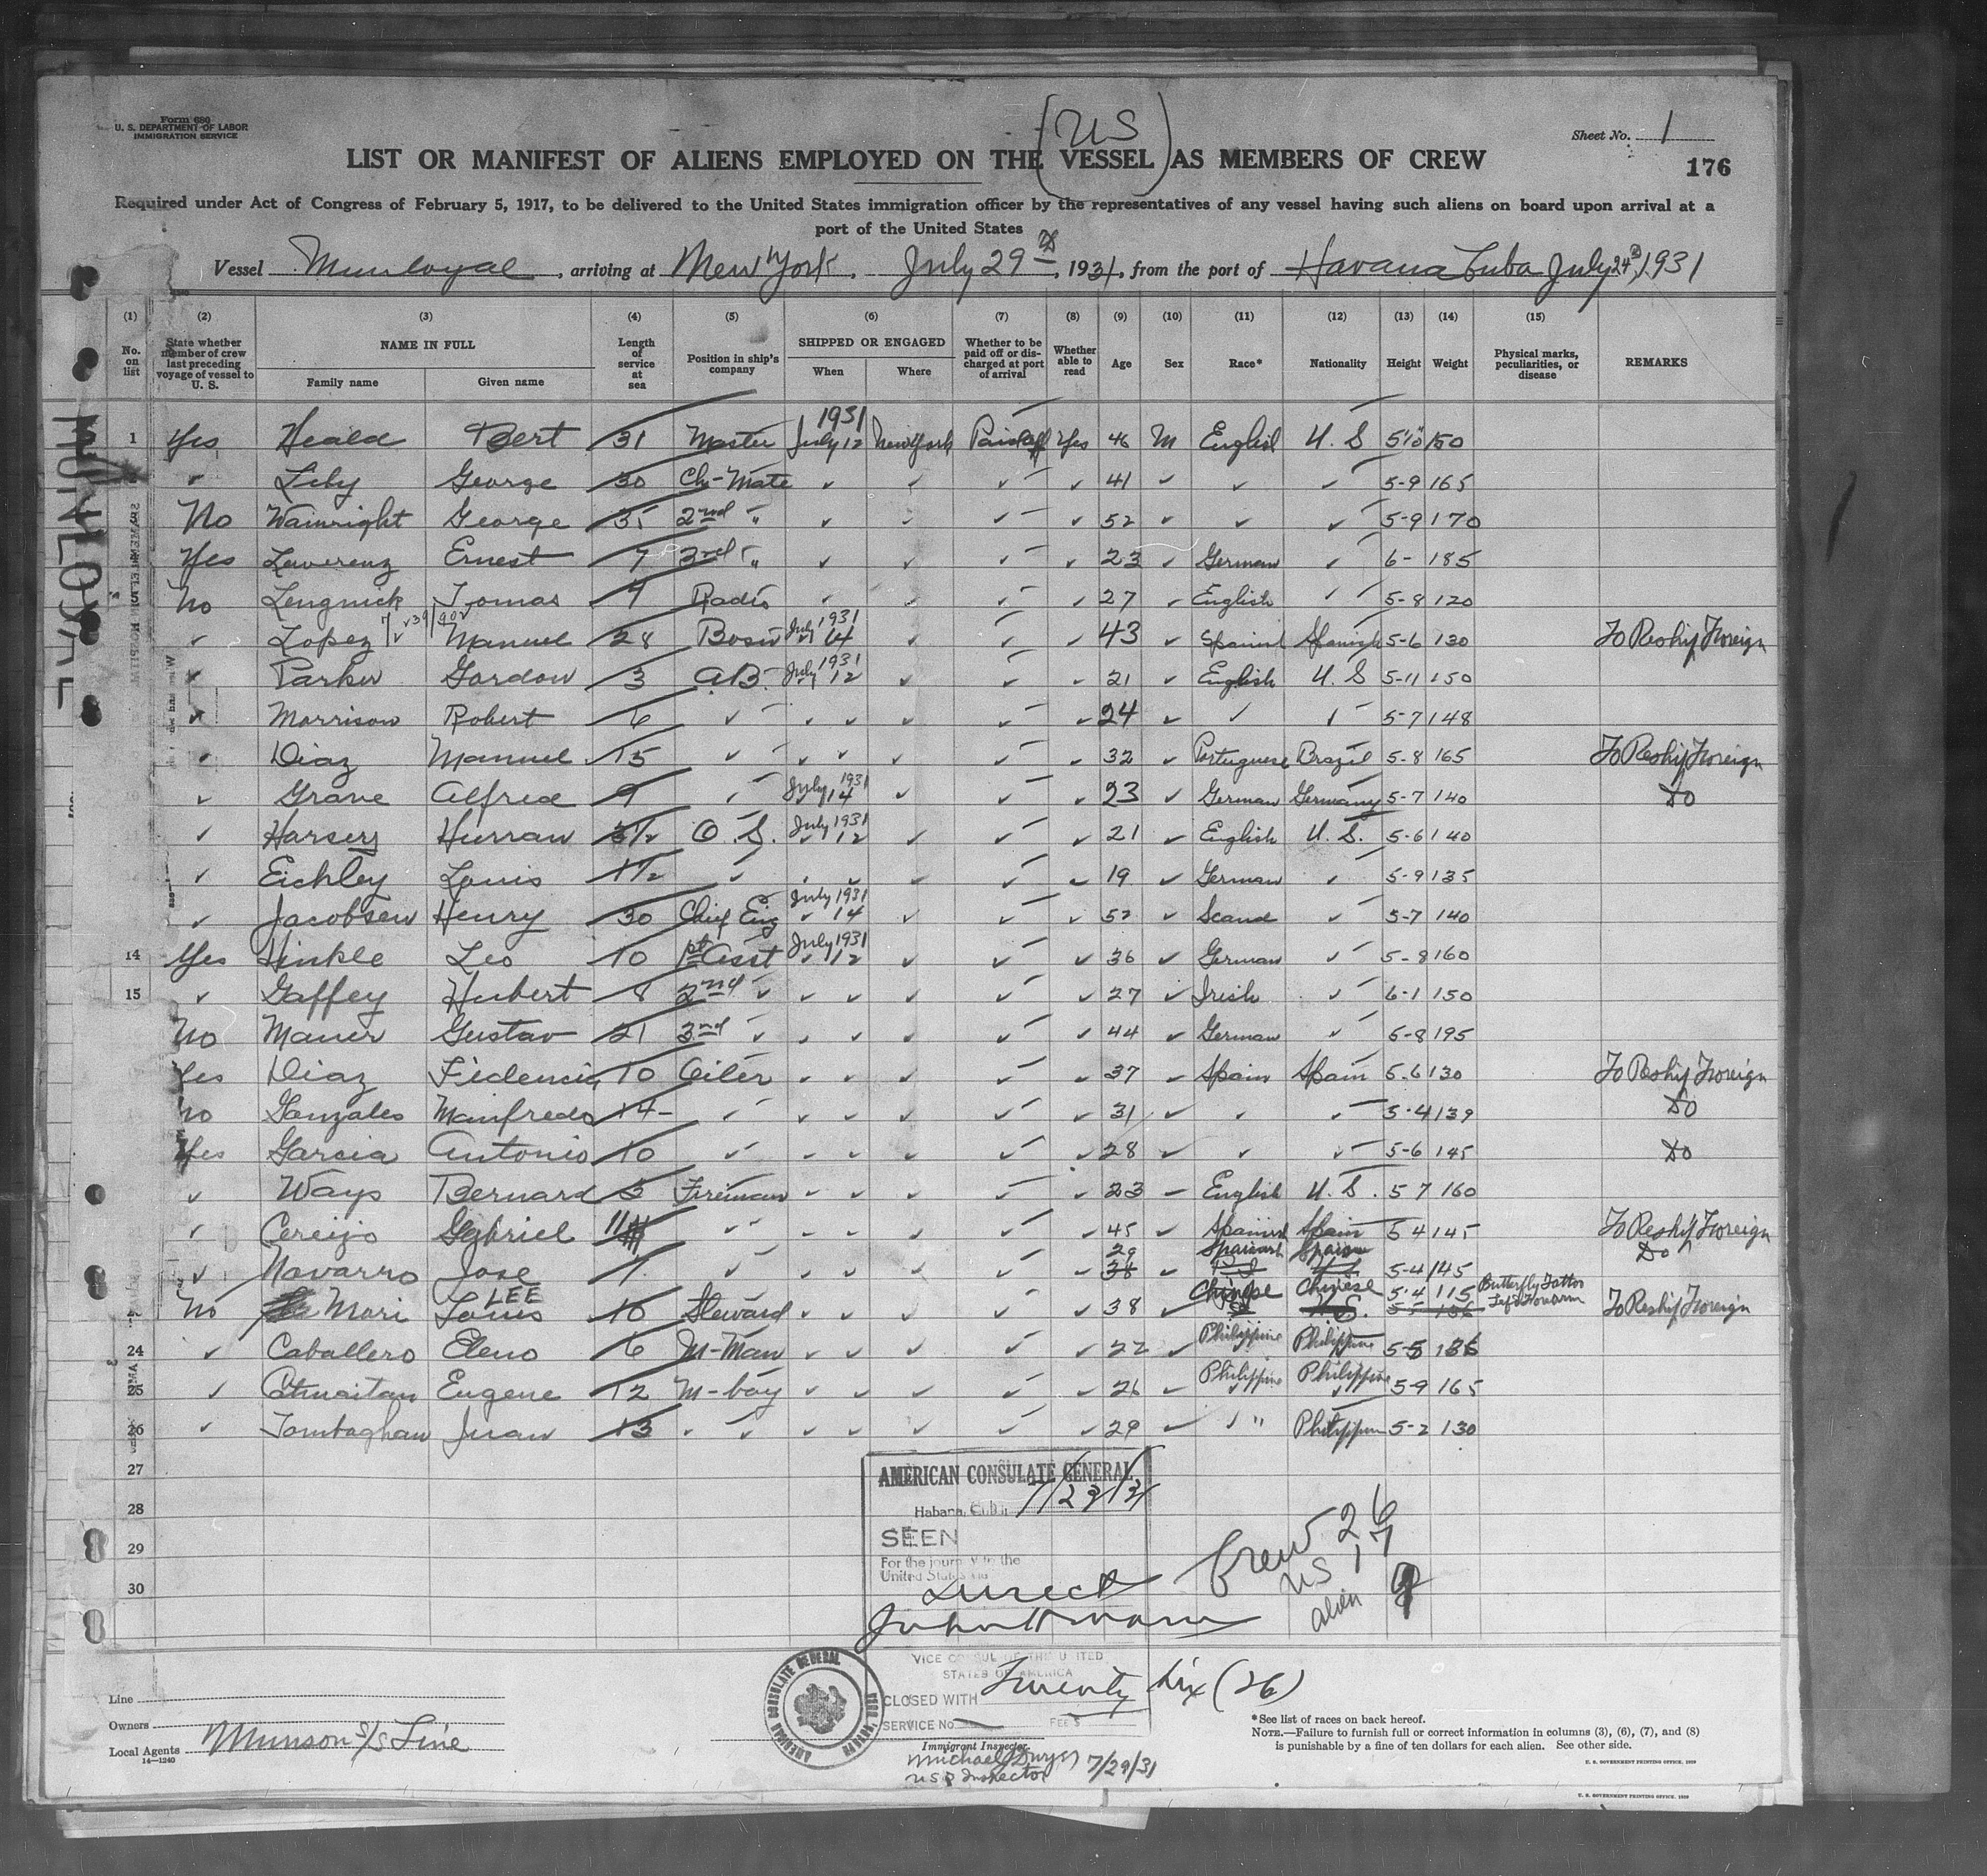 Form 680
U. S. DEPARTMENT OF LABOR
IMMIGRATION SERVICE
(US)
Sheet No. 1
LIST OR MANIFEST OF ALIENS EMPLOYED ON THE VESSEL AS MEMBERS OF CREW
176
Required under Act of Congress of February 5, 1917, to be delivered to the United States immigration officer by the representatives of any vessel having such aliens on board upon arrival at a
port of the United States
Vessel Munloyal, arriving at New York, July 29th, 1931, from the port of Havana Cuba July 24th, 1931
(1) (2) (3) (4) (5) (6) (7) (8) (9) (10) (11) (12) (13) (14) (15)
No. on list State whether member of crew last preceding voyage of vessel to U. S. NAME IN FULL Family name Given name Length of service at sea Position in ship's company SHIPPED OR ENGAGED When Where Whether to be paid off or discharged at port of arrival Whether able to read Age Sex Race* Nationality Height Weight Physical marks, peculiarities, or disease REMARKS
MUNLOYAL
1 Yes Heald Bert 31 Master 1931 July 12 New York Paid off Yes 46 M English U. S 5'10" 150
✓ Lily George 30 Ch-Mate ✓ ✓ ✓ ✓ 41 ✓ ✓ ✓ 5-9 165
No Wainright George 35 2nd " ✓ ✓ ✓ ✓ 52 ✓ ✓ ✓ 5-9 170
Yes Laverenz Ernest 7 3rd " ✓ ✓ ✓ ✓ 23 ✓ German ✓ 6- 185
No Lengnick Tomas 4 Radio ✓ ✓ ✓ ✓ 27 ✓ English ✓ 5-8 120
✓ Lopez Manuel 28 Bosn July 1931 14 ✓ ✓ ✓ 43 ✓ Spanish Spanish 5-6 130 To Reship Foreign
✓ Parker Gordon 3 A.B. July 1931 12 ✓ ✓ ✓ 21 ✓ English U. S 5-11 150
✓ Morrison Robert 6 ✓ ✓ ✓ ✓ ✓ ✓ 24 ✓ ✓ ✓ 5-7 148
✓ Diaz Manuel 15 ✓ ✓ ✓ ✓ ✓ ✓ 32 ✓ Portuguese Brazil 5-8 165 To Reship Foreign
✓ Grave Alfred 9 ✓ July 1931 14 ✓ ✓ ✓ 23 ✓ German Germany 5-7 140 Do
✓ Harsey Hurran 3 1/2 O. S. July 1931 12 ✓ ✓ ✓ 21 ✓ English U. S. 5-6 140
✓ Eichley Louis 1 1/2 ✓ ✓ ✓ ✓ ✓ ✓ 19 ✓ German ✓ 5-9 135
✓ Jacobsen Henry 30 Chief Eng July 1931 14 ✓ ✓ ✓ 52 ✓ Scand ✓ 5-7 140
14 Yes Hinkle Leo 10 1st Asst July 1931 12 ✓ ✓ ✓ 36 ✓ German ✓ 5-8 160
15 ✓ Gaffey Hubert 8 2nd ✓ ✓ ✓ ✓ ✓ ✓ 27 ✓ Irish ✓ 6-1 150
No Maner Gustav 21 3rd ✓ ✓ ✓ ✓ ✓ ✓ 44 ✓ German ✓ 5-8 195
Yes Diaz Fidencio 10 Oiler ✓ ✓ ✓ ✓ ✓ 37 ✓ Spain Spain 5-6 130 To Reship Foreign
No Gonzales Manfredo 14 ✓ ✓ ✓ ✓ ✓ ✓ 31 ✓ ✓ ✓ 5-4 139 Do
Yes Garcia Antonio 10 ✓ ✓ ✓ ✓ ✓ ✓ 28 ✓ ✓ ✓ 5-6 145 Do
✓ Ways Bernard 5 Fireman ✓ ✓ ✓ ✓ ✓ 23 ✓ English U. S. 5 7 160
✓ Cereijo Gabriel 11 ✓ ✓ ✓ ✓ ✓ ✓ 45 ✓ Spanish Spain 5 4 145 To Reship Foreign
✓ Navarro Jose 7 ✓ ✓ ✓ ✓ ✓ ✓ 29 ✓ Spanish Spain 5-4 145 Do
No Mari Louis LEE 10 Steward ✓ ✓ ✓ ✓ ✓ 38 ✓ Chinese Chinese 5-4 115 Butterfly Tattoo Left Forearm To Reship Foreign
24 ✓ Caballero Eleno 6 M-Man ✓ ✓ ✓ ✓ ✓ 22 ✓ Philippine Philippine 5-5 136
25 ✓ Eugene 12 M-boy ✓ ✓ ✓ ✓ ✓ 26 ✓ Philippine Philippine 5-9 165
26 ✓ Tombaghan Juan 13 ✓ ✓ ✓ ✓ ✓ ✓ 29 ✓ ✓ " Philippine 5-2 130
27
28
29
30
AMERICAN CONSULATE GENERAL
Habana, Cuba 7/23/31
SEEN
For the journey to the
United States via
Direct
Crew 26
US 17
alien 9
VICE CONSUL OF THE UNITED
STATES OF AMERICA
CLOSED WITH Twenty six (26)
SERVICE No. FEE $
AMERICAN CONSULATE GENERAL
Line
Owners
Local Agents Munson S/S Line
14—1240
Immigrant Inspector
Michael J Dwyer 7/29/31
US Inspector
*See list of races on back hereof.
NOTE.—Failure to furnish full or correct information in columns (3), (6), (7), and (8)
is punishable by a fine of ten dollars for each alien. See other side.
U. S. GOVERNMENT PRINTING OFFICE. 1929
U. S. GOVERNMENT PRINTING OFFICE. 1929